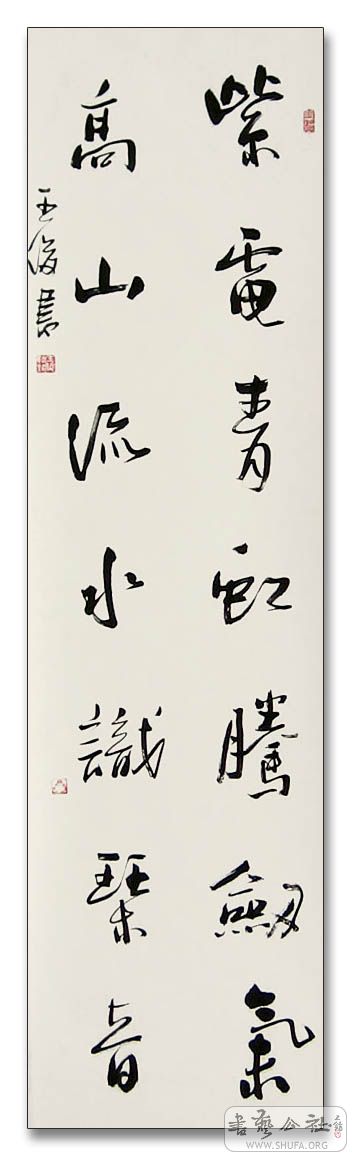 紫電青虹騰劍氣
高山流水識琴音
王俊書
書藝公社
WWW.SHUFA.ORG